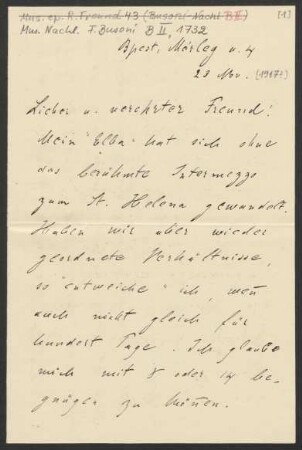 Mus. ep. R. Freund 43 (Busoni-Nachl. B II) [1]
Mus. Nachl. F. Busoni B II, 1732
Bpest, Mérleg u. 4
23 Nov. [1917?]
Lieber u. verehrter Freund!
Mein "Elba" hat sich ohne
das berühmte Intermezzo
zum St. Helena gewandelt.
Haben wir aber wieder
geordnete Verhältnisse,
so "entweiche" ich, wenn
auch nicht gleich für
hundert Tage. Ich glaube
mich mit 8 oder 14 be-
gnügen zu können.